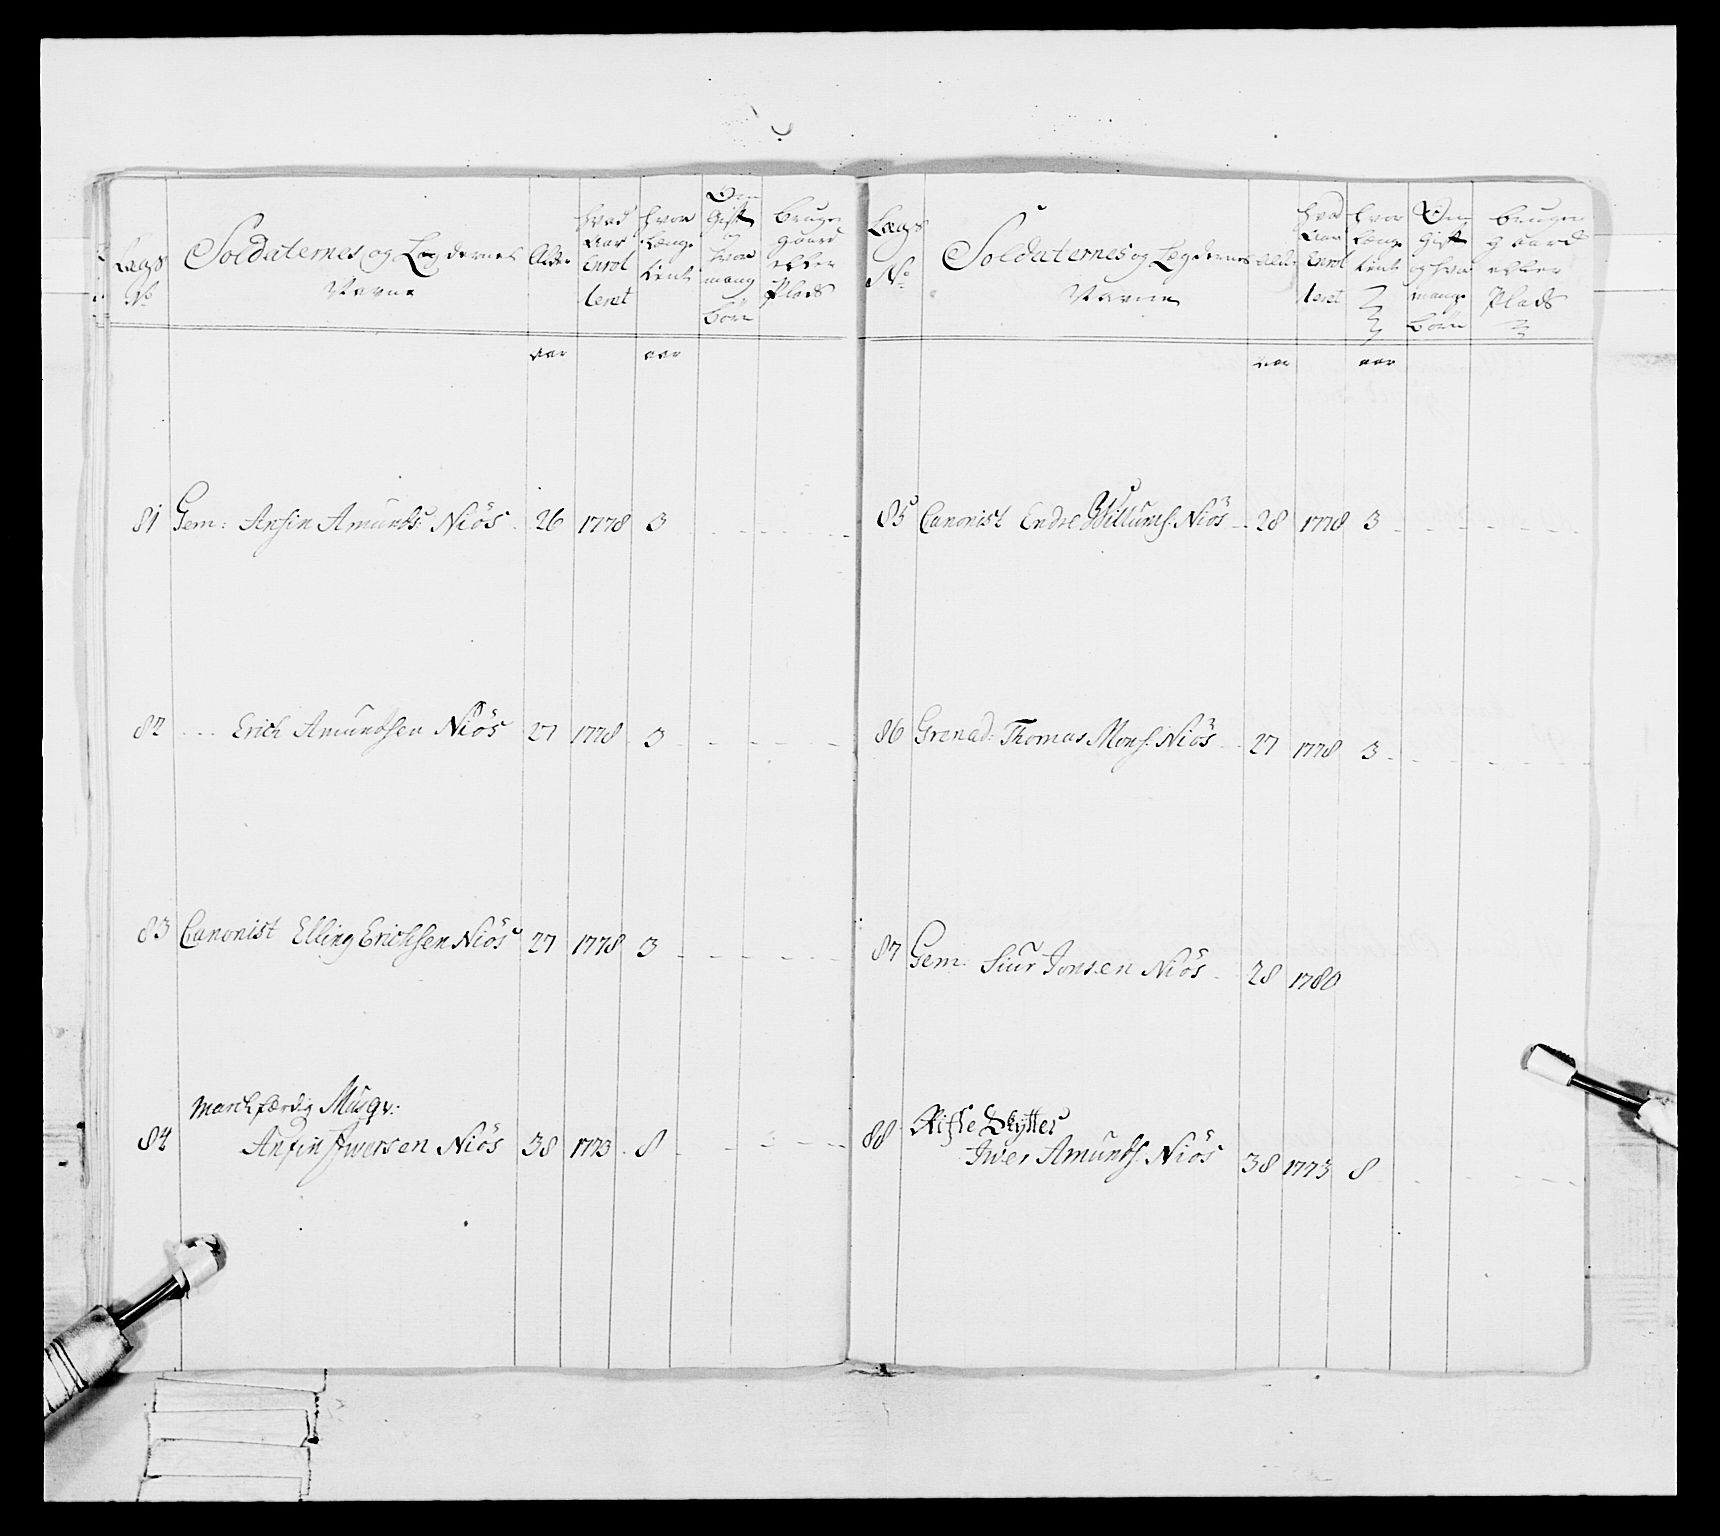 Lægs No
Soldaternes og Lægdernes Navne
Alder
hvad Aar Enrolleret
hvor længe tient
Om Gift hvor mange Børn
bruger gaard eller Plads
aar aar
81 Gem: Ansin Amunds: Niös 26 1778 3
82 ... Erich Amundsen Niös 27 1778 3
83 Canonist Elling Erichsen Niös 27 1778 3
Marchfærdig Musqv:
84 Anfin Iwersen Niös 38 1773 8
Lægs No
Soldaternes og Lægdernes Navne
Alder
hvad Aar Enrolleret
hvor længe tient
Om Gift og hvor mange Børn
bruger gaard eller Plads
aar aar
85 Canonist Endre Willumss. Niös 28 1778 3
86 Grenad: Thomas Mons: Niös 27 1778 3
87 Gem: Siur Jonsen Niös 28 1780
88 Riffle Skytter
Iver Amunds. Niös 38 1773 8